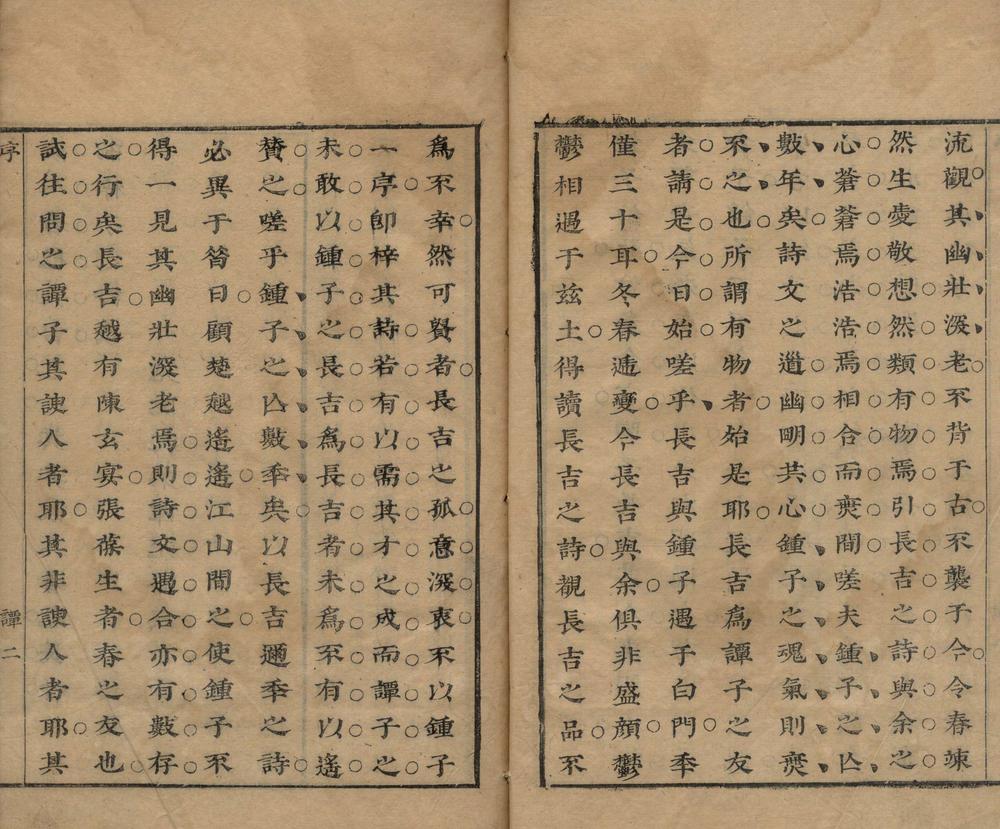 流觀其幽壯深老不背于古不襲于今令春竦
然生愛敬想然類有物焉引長吉之詩與余之
心蒼蒼焉浩浩焉相合而爽間嗟夫鍾子之亾
數年矣詩文之道幽明共心鍾子之魂氣則爽
不之也所謂有物者始是耶長吉為譚子之友
者請是今日始嗟乎長吉與鍾子遇于白門秊
僅三十耳冬春遞變今長吉與余俱非盛顏鬱
鬱相過于茲土得讀長吉之詩觀長吉之品不
為不幸然可貿者長吉之孤意深衷不以鍾子
一序卽梓其詩若有以需其才之成而譚子之
未敢以鍾子之長吉為長吉者未為不有以遙
贊之嗟乎鍾子之亾數秊矣以長吉邇秊之詩
必異于昝日顧楚越遙遙江山間之使鍾子不
得一見其幽壯深老焉則詩文遇合亦有數存
之行矣長吉越有陳玄宴張葆生者春之友也
試往問之譚子其諛人者耶其非諛人者耶其
序
譚二